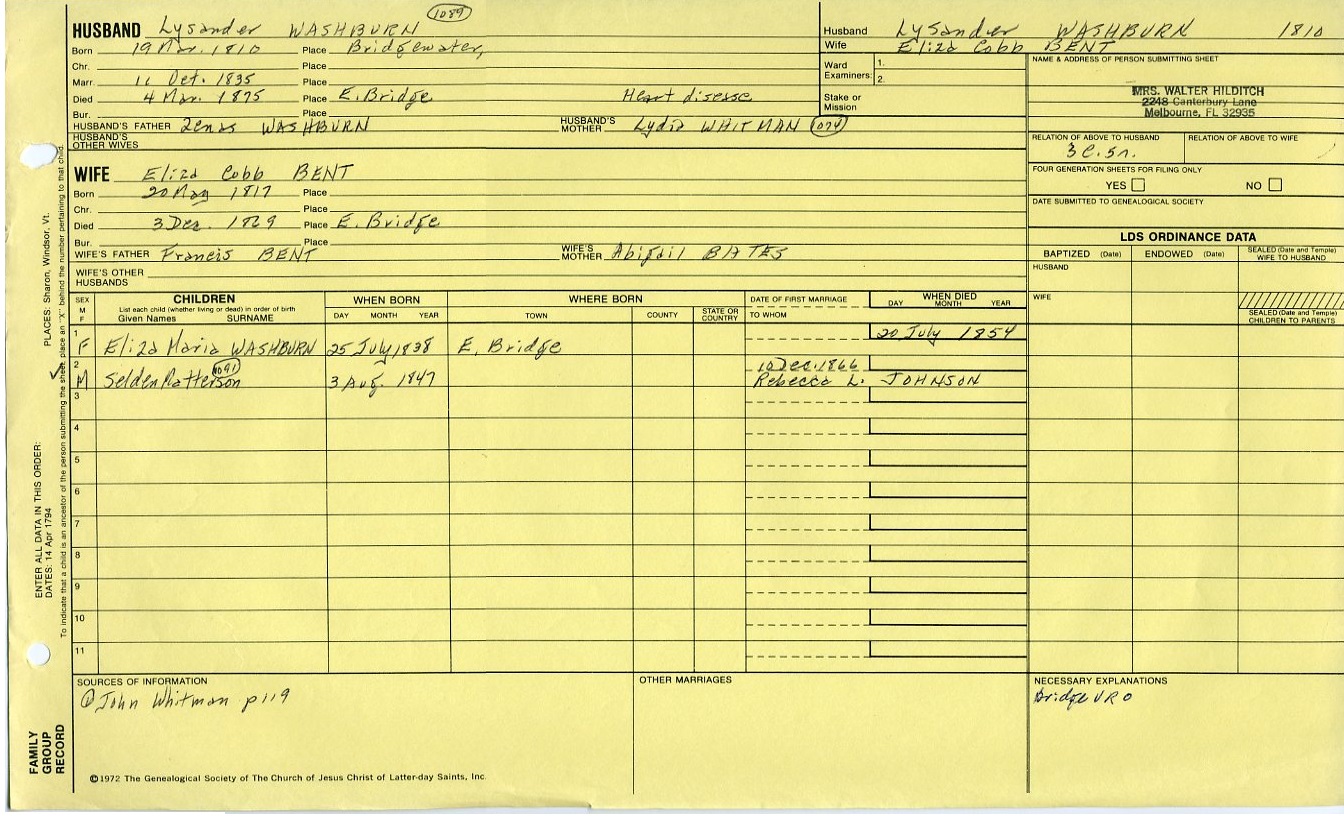 1089
HUSBAND Lysander WASHBURN
Born 19 Mar. 1810 Place Bridgewater,
Chr. Place
Marr. 11 Oct. 1835 Place
Died 4 Mar. 1875 Place E. Bridge Heart disease
Bur. Place
HUSBAND'S FATHER Zenas WASHBURN HUSBAND'S MOTHER Lydia WHITMAN 1074
HUSBAND'S OTHER WIVES
WIFE Eliza Cobb BENT
Born 20 May 1817 Place
Chr. Place
Died 3 Dec. 1869 Place E. Bridge
Bur. Place
WIFE'S FATHER Francis BENT WIFE'S MOTHER Abigail BATES
WIFE'S OTHER HUSBANDS
Husband Lysander WASHBURN 1810
Wife Eliza Cobb BENT
Ward Examiners: 1.
2.
Stake or Mission
NAME & ADDRESS OF PERSON SUBMITTING SHEET
MRS. WALTER HILDITCH
2248 Canterbury Lane
Melbourne, FL 32935
RELATION OF ABOVE TO HUSBAND RELATION OF ABOVE TO WIFE
3 C. 5r.
FOUR GENERATION SHEETS FOR FILING ONLY
YES NO
DATE SUBMITTED TO GENEALOGICAL SOCIETY
LDS ORDINANCE DATA
BAPTIZED (Date) ENDOWED (Date) SEALED (Date and Temple) WIFE TO HUSBAND
HUSBAND
WIFE
SEALED (Date and Temple) CHILDREN TO PARENTS
SEX M F
CHILDREN
List each child (whether living or dead) in order of birth
Given Names SURNAME
WHEN BORN
DAY MONTH YEAR
WHERE BORN
TOWN COUNTY STATE OR COUNTRY
DATE OF FIRST MARRIAGE
TO WHOM
WHEN DIED
DAY MONTH YEAR
1 20 July 1854
F Eliza Maria WASHBURN 25 July 1838 E. Bridge
2 1091 10 Dec. 1866
M Selden Matterson 3 Aug. 1847 Rebecca L. JOHNSON
3
4
5
6
7
8
9
10
11
SOURCES OF INFORMATION
① John Whitman p 119
OTHER MARRIAGES
NECESSARY EXPLANATIONS
Bridge VRO
©1972 The Genealogical Society of The Church of Jesus Christ of Latter-day Saints, Inc.
FAMILY GROUP RECORD
ENTER ALL DATA IN THIS ORDER:
DATES: 14 Apr 1794
PLACES: Sharon, Windsor, Vt.
To indicate that a child is an ancestor of the person submitting the sheet, place an "X" behind the number pertaining to that child.